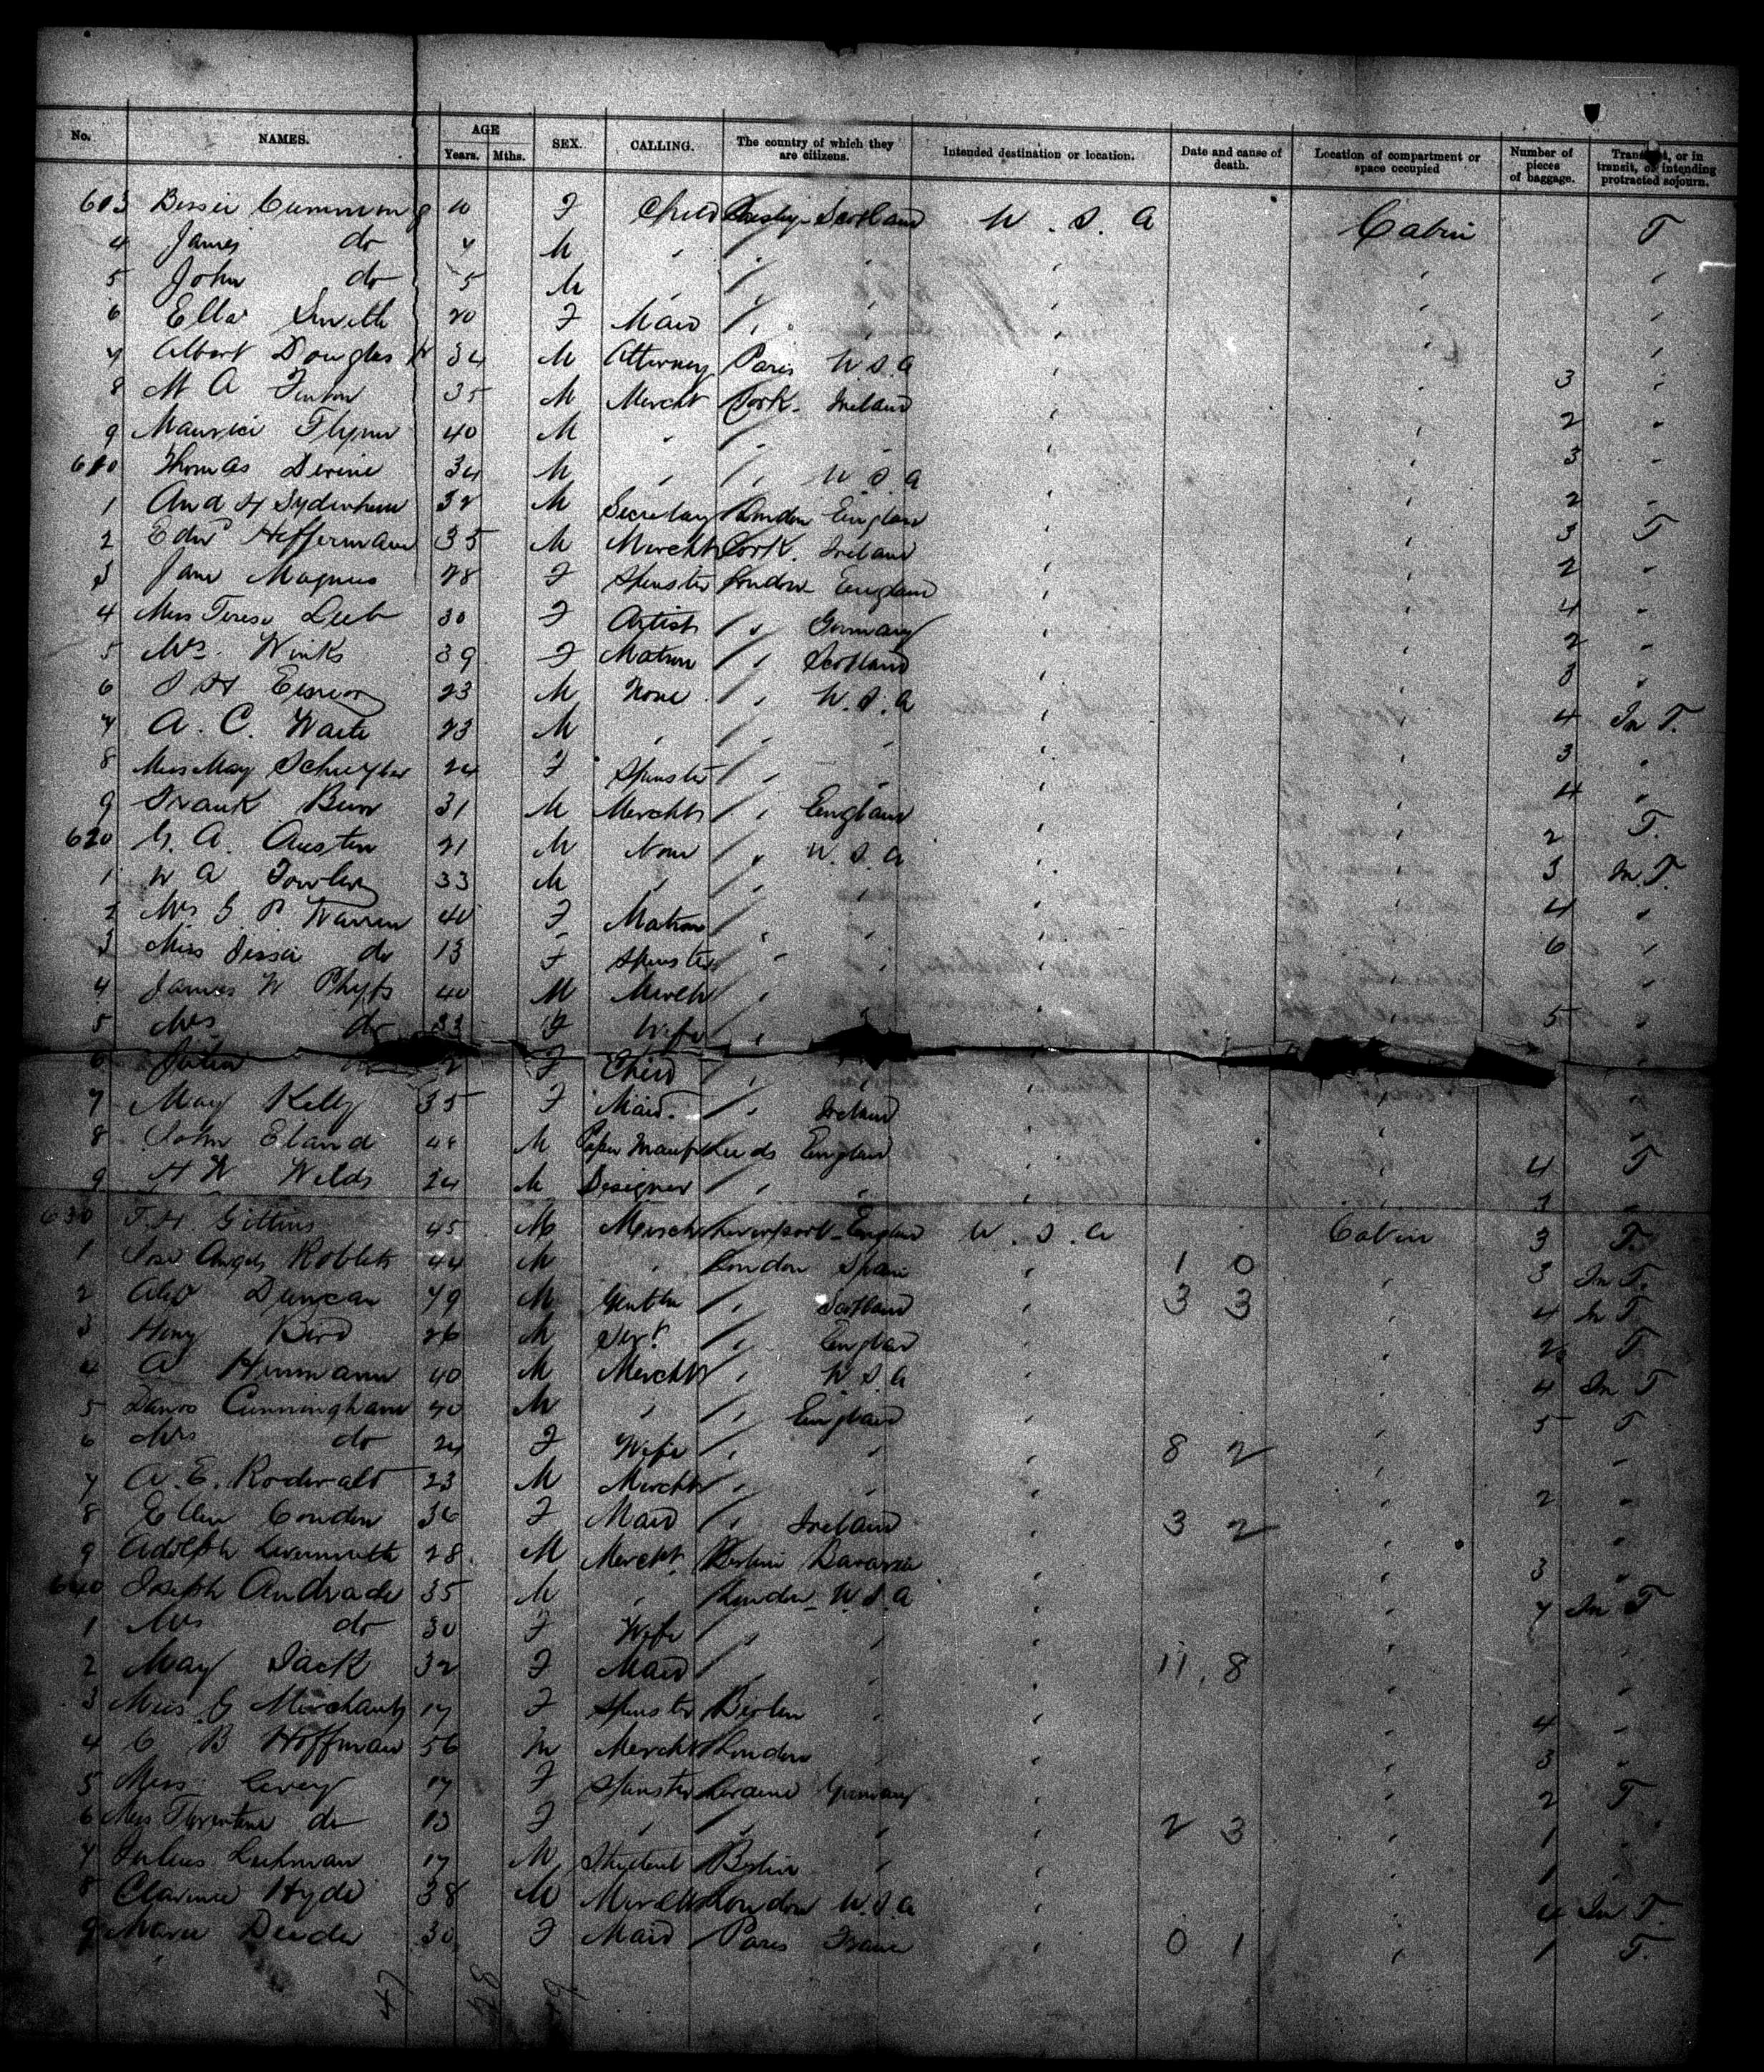 No. NAMES. AGE Years. Mths. SEX. CALLING. The country of which they are citizens. Intended destination or location. Date and cause of death. Location of compartment or space occupied Number of pieces of baggage. Transient, or in transit, or intending protracted sojourn.
603 Bessie Cummings 10 F Child Scotland U. S. A Cabin T
4 James do 7 M " " " " " "
5 John do 5 M " " " " " "
6 Ella Smith 20 F Maid " " " " "
7 Albert Douglas Jr 34 M Attorney Paris U.S.A " " 3 "
8 M A Fenton 35 M Mercht Cork. Ireland " " 2 "
9 Maurice Flynn 40 M " " " " " 3 "
610 Thomas Devine 34 M " " U S A " " 2 "
1 And H Sydenham 32 M Secretary London England " " 3 T
2 Edwd Heffermann 35 M Mercht Cork. Ireland " " 2 "
3 Jane Magnus 28 F Spinster London England " " 4 "
4 Miss Terese Leeb 30 F Artist " " Germany " " 2 "
5 Mrs. Winks 39 F Matron " " Scotland " " 3 "
6 23 M None " " U.S.A " " 4 In T.
7 A. C. Waite 23 M " " " " " " 3 "
8 Miss May Schuyler 24 F Spinster " " " " " 4 "
9 Frank Burr 31 M Mercht " " England " " 2 T.
620 G. A. Austin 21 M None " " U.S.A " " 3 In T.
1 W A Fowler 33 M " " " " " " 4 "
2 Mrs G P Warren 40 F Matron " " " " " 6 "
3 Miss Jessie do 13 F Spinster " " " " "
4 James W Phyfs 40 M Mercht " " " 5 "
5 Mrs do 33 F Wife " "
6 Julia do 2 F Child " " " "
7 May Kelly 35 F Maid. " " Ireland " " "
8 John Eland 48 M Paper Manufr Leeds England " 4 T
9 H W Wilds 24 M Designer " " " " " 3 "
630 T. H. Gittins 45 M Merch Liverpool England U. S. A Cabin 3 T.
1 Jose Angels Robles 44 M " London Spain " 1 0 " 3 In T.
2 Alex Duncan 49 M Gentln " " Scotland " 3 3 " 4 In T
3 Heny Bird 26 M Servt " " England " " 2 T
4 A Hermann 40 M Mercht " " U S A " " 4 In T
5 James Cunningham 40 M " " " England " " 5 T
6 Mrs do 24 F Wife " " " " 8 2 " "
7 A. E. Roderwalt 23 M Mercht " " " " " 2 "
8 Ellen Condon 36 F Maid " " Ireland " 3 2 " "
9 Adolph 28 M Mercht. Berlin Bavaria " " 3 "
640 Joseph Andrade 35 M " London U.S.A " " 7 In T
1 Mrs do 30 F Wife " " " " "
2 May Jack 32 F Maid " " 11 8 " "
3 Miss G Merchant 17 F Spinster Berlin " " " 4 "
4 C B Hoffman 56 M Mercht London " " " 3 "
5 Miss Levey 17 F Spinster Germany " " 2 T
6 Miss Florentine do 13 F " " " " 2 3 " 1 "
7 Julius Lehman 17 M Student Berlin " " " 1 "
8 Clarence Hyde 38 M Mercht London U.S.A " " 4 In T.
9 Marie 30 F Maid Paris France " 0 1 " 1 T.
47 28 19